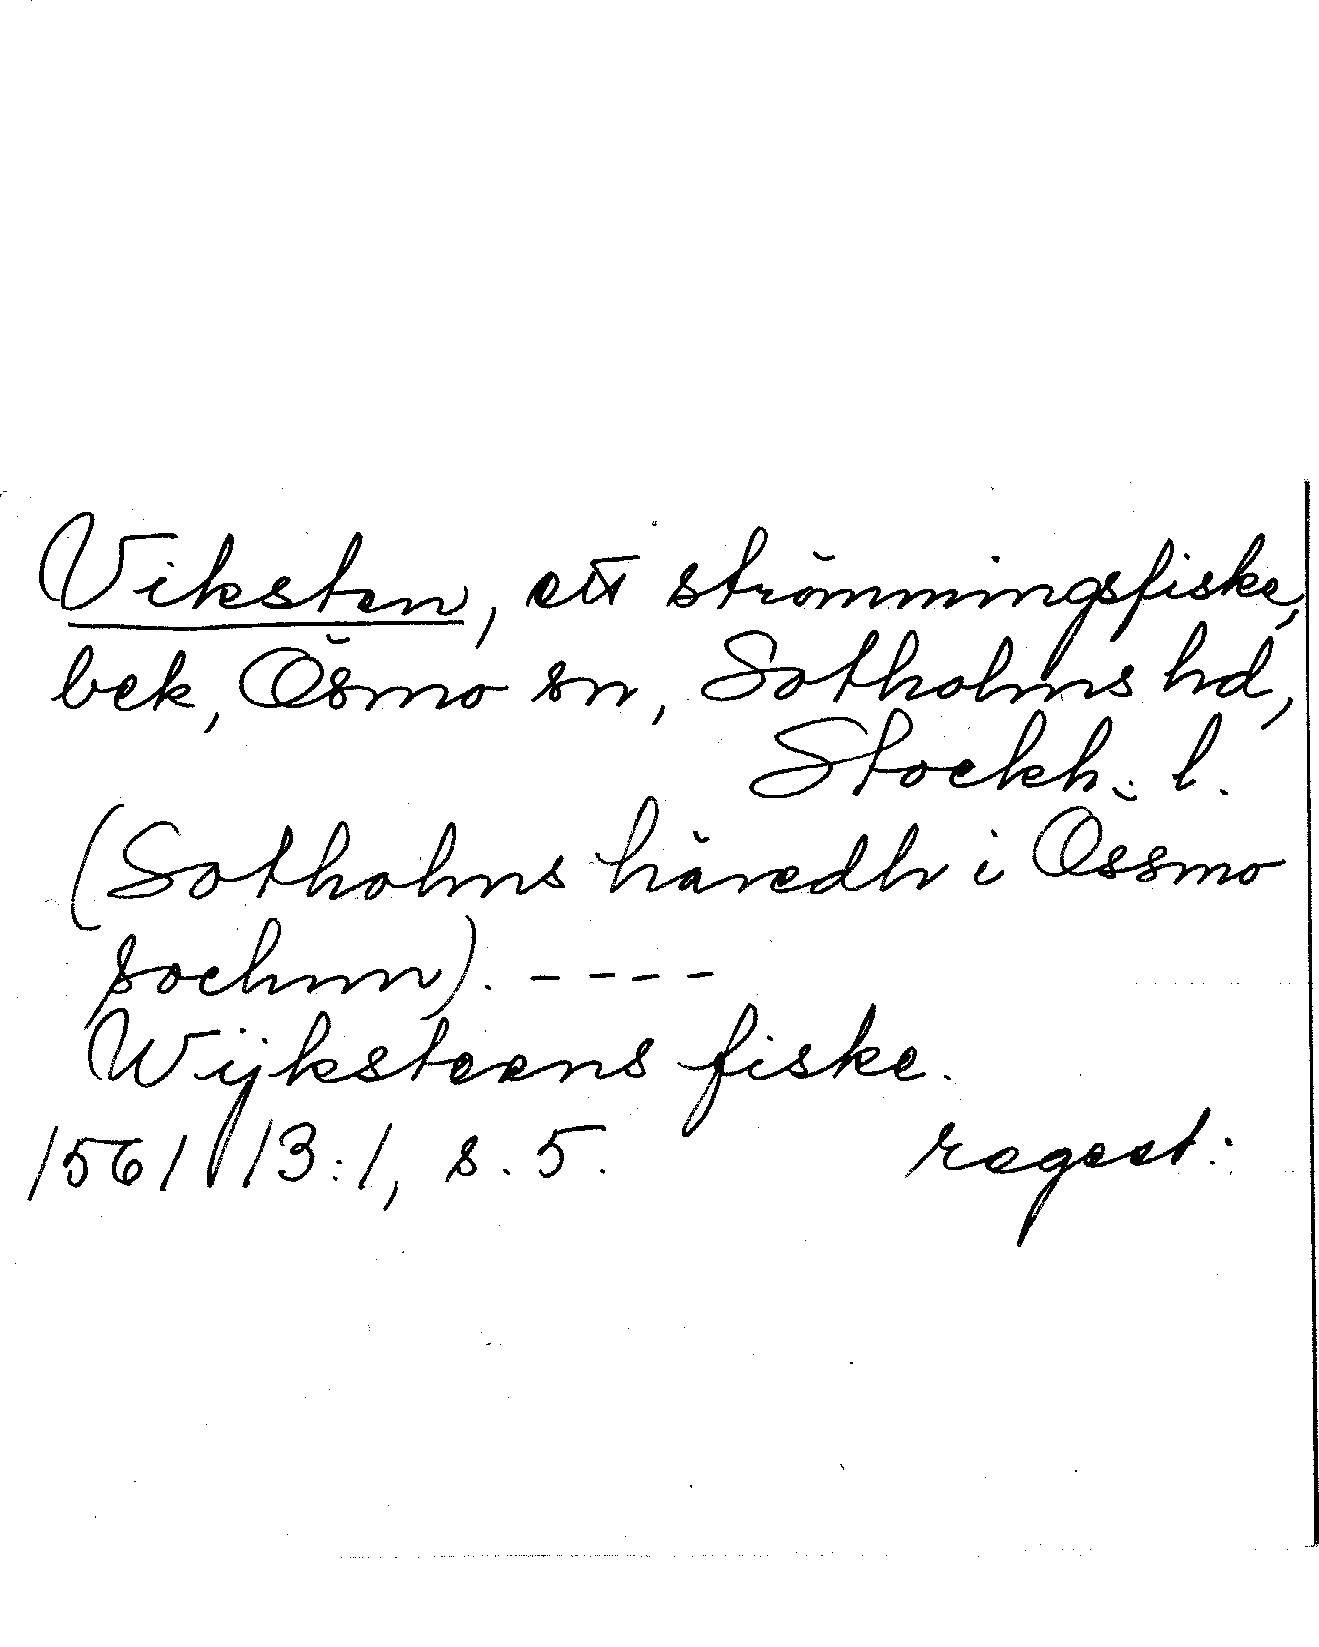 Viksten, ett strömmingsfiske,
bek, Ösmo sn, Sotholms hd,
Stockh. l.
(Sotholms häredh i Össmo
sochnn). ----
Wijksteens fiske.
1561 13:1, s. 5. regest.